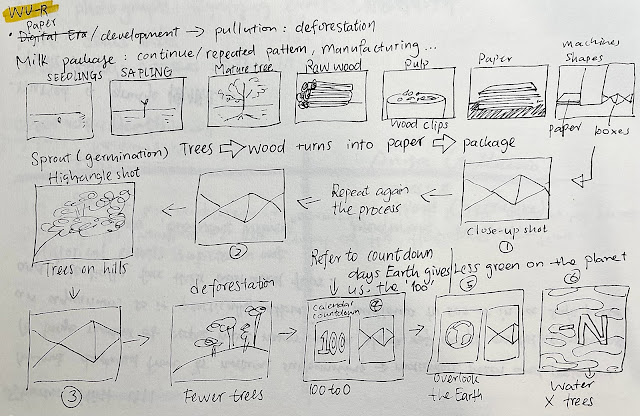 WU-R
Paper
• Digital Era / development → pullution : deforestation
Milk package : continue / repeated pattern, manufacturing ...
SEEDLINGS
SAPLING
Mature tree
Raw wood
Pulp
Paper
machines
shapes
Wood clips
paper
boxes
Sprout (germination) Trees ⇨ wood turns into paper ⇨ package
Highangle shot
Trees on hills
②
Repeat again
the process
Close-up shot
①
③
deforestation
Fewer trees
Refer to countdown
days Earth gives
us: the '100'
Calendar
countdown
④
100
100 to 0
Less green on the planet
⑤
Overlook
the Earth
⑥
N
Water
X trees